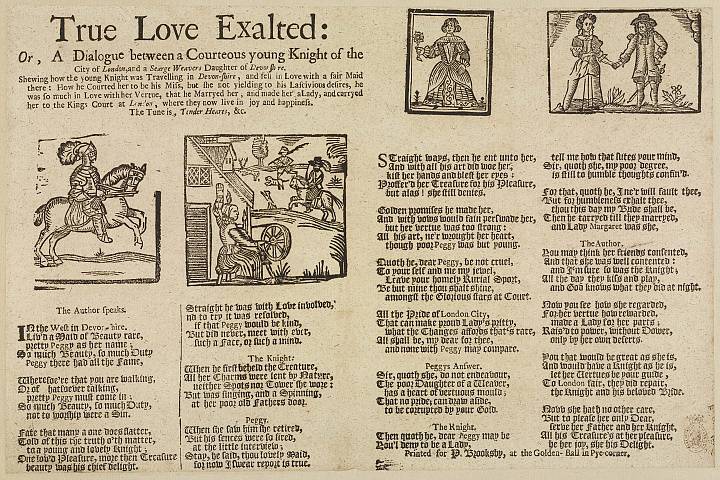 True Love Exalted:
Or, A Dialogue between a Courteous young Knight of the
City of London, and a Searge Weavers Daughter of Devonshire.
Shewing how the young Knight was Travelling in Devon-shire, and fell in Love with a fair Maid
there: How he Courted her to be his Miss, but she not yielding to his Lascivious desires, he
was so much in Love with her Vertue, that he Marryed her, and made her a Lady, and carryed
her to the Kings Court at London, where they now live in joy and happiness.
The Tune is, Tender Hearts, &c.
The Author speaks.
IN the West in Devon-shire,
Liv'd a Maid of Beauty rare,
pretty Peggy as her name;
So much Beauty, so much Duty
Peggy there had all the Fame,
Wheresoe're you are walking,
Or of whatsoever talking,
pretty Peggy must come in:
So much Beauty, so much Duty,
not to worship were a Sin.
Fate that many a one does flatter,
Told of this the truth o'th matter,
to a young and lovely Knight;
One lov'd Pleasure, more then Treasure
beauty was his chief delight.
Straight he was with Love involved,
nd to try it was resolved,
if that Peggy would be kind,
But did never, meet with ever,
such a Face, or such a mind.
The Knight:
When he first beheld the Creature,
All her Charms were lent by Nature,
neither Spots nor Tower she wore:
But was singing, and a Spinning,
at her poor old Fathers door.
Peggy.
When she saw him she retired,
But his senses were so fired,
at the little interview;
Stay, he said, thou lovely Maid,
for now I swear report is true.
STraight ways, then he ent unto her,
And with all his art did woe her,
kist her hands and blest her eyes:
Proffer'd her Treasure for his Pleasure,
but alas! she still denies.
Golden promises he made her,
And with vows would fain perswade her,
but her vertue was too strong:
All his art, ne'r wrought her heart,
though poor Peggy was but young.
Quoth he, dear Peggy, be not cruel,
To your self and me my jewel,
Leave your homely Rural Sport,
Be but mine thou shalt shine,
amongst the Glorious stars at Court.
All the Pride of London City,
That can make proud Lady's pretty,
what the Changes affords that's rare,
All shall be, my dear for thee,
and none with Peggy may compare.
Peggys Answer.
Sir, quoth she, do not endeavour,
The poor Daughter of a Weaver,
has a heart of vertuous mould;
That no pride, can draw aside,
to be corrupted by your Gold.
The Knight.
Then quoth he, dear Peggy may be
You'l deny to be a Lady,
tell me how that sutes your mind,
Sir, quoth she, my poor degree,
is still to humble thoughts confin'd.
For that, quoth he, I ne'r will fault thee,
But for humbleness exhalt thee,
thou this day my Bride shall be,
Then he carryed till they marryed,
and Lady Margaret was she.
The Author.
You may think her friends consented,
And that she was well contented:
and I'm sure so was the Knight;
All the day they kiss and play,
and God knows what they did at night.
Now you see how she regarded,
For her vertue how rewarded,
made a Lady for her parts;
Rais'd to power, without Dower,
only by her own deserts.
You that would be great as she is,
And would have a Knight as he is,
let her Vertues be your guide;
To London fair, they did repair,
the Knight and his beloved Bride.
Now she hath no other care,
But to please her only Dear,
serve her Father and her Knight,
All his Treasure's at her pleasure,
he her joy, she his Delight.
Printed for P. Brooksby, at the Golden-Ball in Pye-corner,